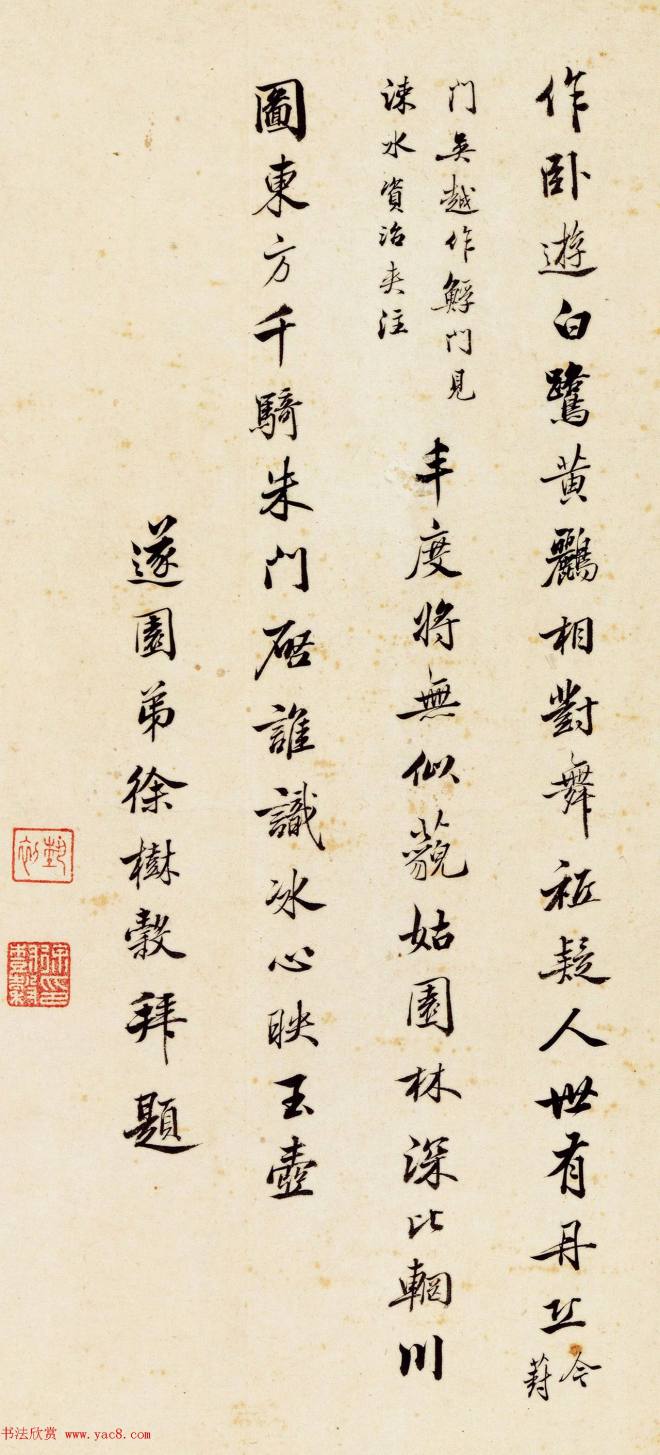 作卧遊白鷺黄鸝相對舞秪疑人世有丹丘
今
葑
門吴越作䱐門見
涑水資治夾注
丰度將無似藐姑園林深比輞川
圖東方千騎朱門啓誰識冰心映玉壺
遂園弟徐樹穀拜題
藝初
徐印樹穀
书法欣赏 www.yac8.com